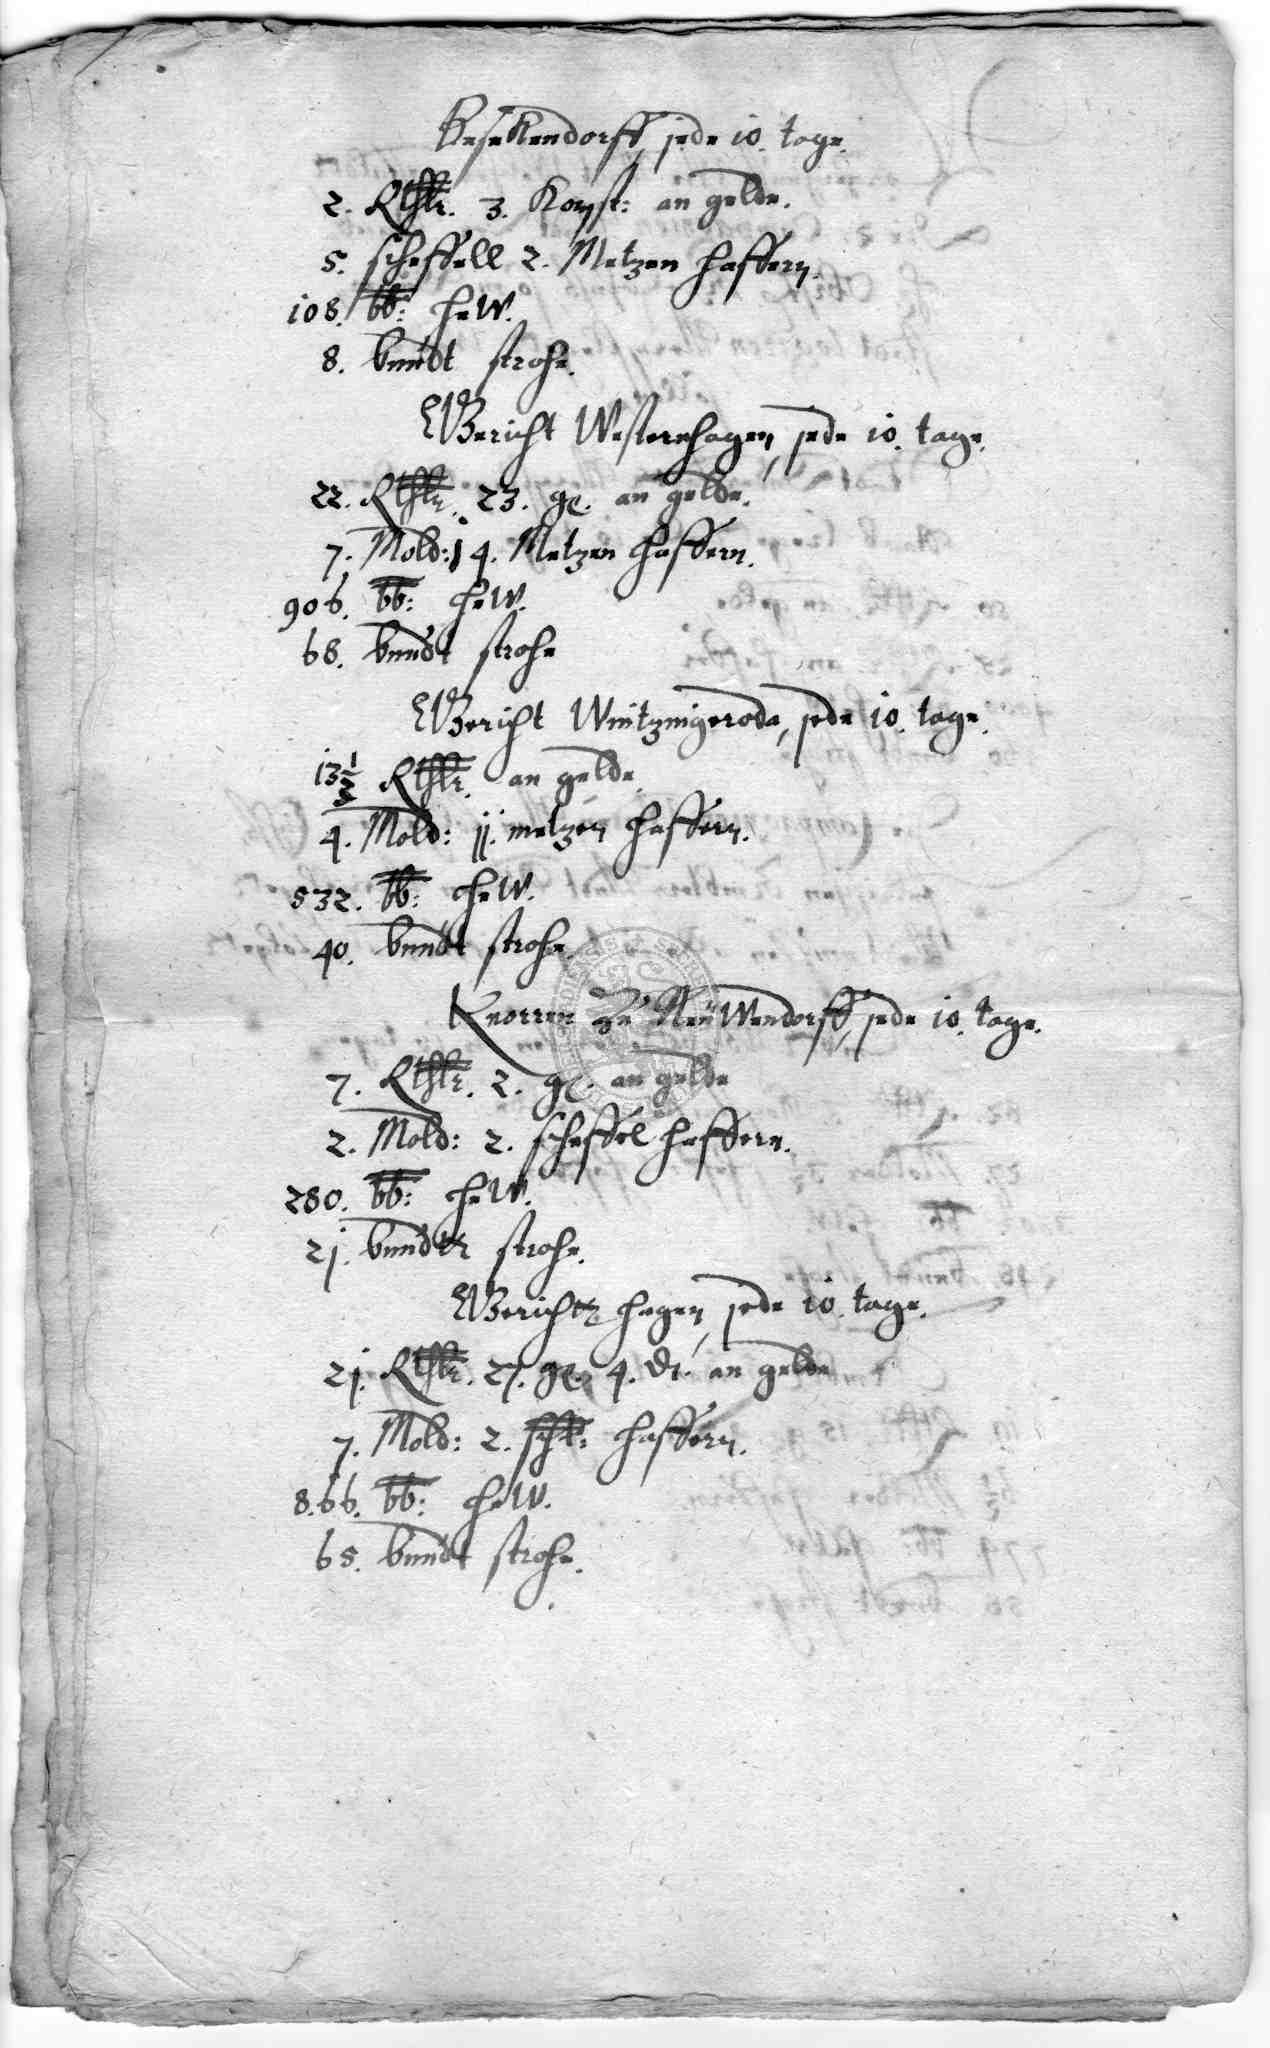 Besekendorff, jede 10. tage.
2. Rthlr. 3. Kopst: an gelde.
5. scheffell 2. Metzen haffern.
108. lb: heW.
8. bundt strohe.
Gericht Westernhagen, jede 10. tage.
22. Rthlr. 23. gr. an gelde.
7. Mold: 14. Metzen haffern.
906. lb: heW.
68. bundt strohe
Gericht Wintzingeroda, jede 10. tage.
13½ Rthlr. an gelde.
4. Mold: jj. metzen haffern.
532. lb: heW.
40. bundt strohe.
Knorren Zu NeuWendorff, jede 10. tage.
7. Rthlr. 2. gr. an gelde
2. Mold: 2. scheffel haffern.
280. lb: heW.
2j. bundtt strohe.
Gerichtt hagen, jede 10. tage.
2j. Rthlr. 27. gr. 4. d. an gelde
7. Mold: 2. schfl: haffern.
8.66. lb: heW.
65. bundt strohe.